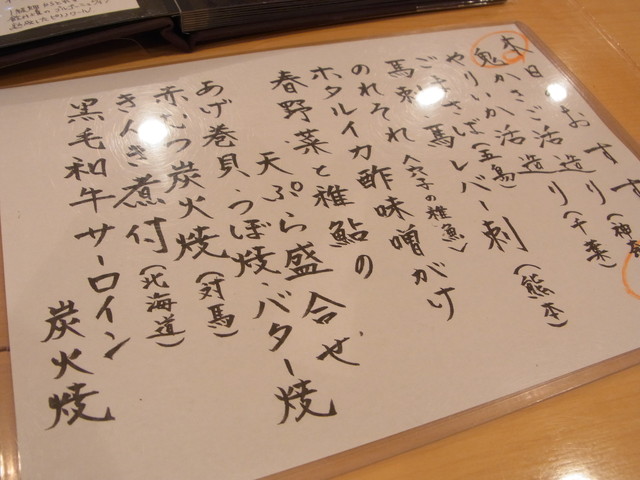 本日のおすす
鬼かさご活造り(神奈
やりいか活造り(千葉)
ごまさば(五島)
馬刺・馬レバー刺(熊本)
のれそれ(穴子の稚魚)
ホタルイカ酢味噌がけ
春野菜と稚鮎の
天ぷら盛合せ
あげ巻貝・つぼ焼・バター焼
赤むつ炭火焼(対馬)
きんき煮付(北海道)
黒毛和牛サーロイン
炭火焼